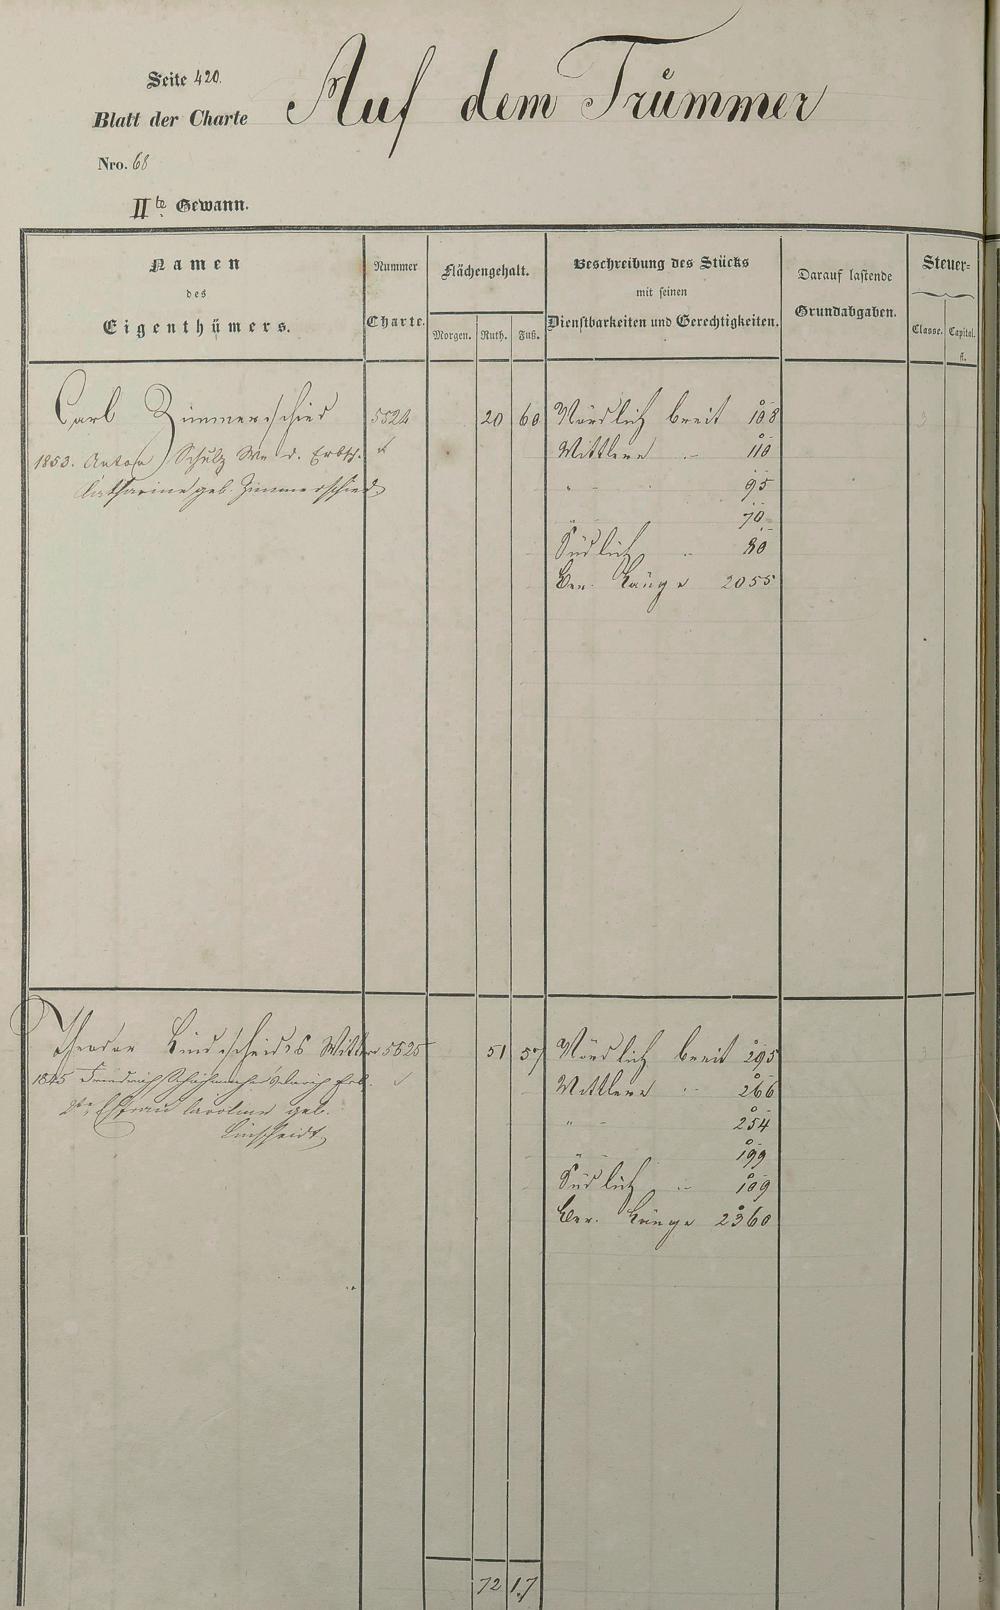 Seite 420.
Auf dem Trümmer
Blatt der Charte
Nro. 68
IIte Gewann.
Namen
des
Eigenthümers.
Nummer
Charte.
Flächengehalt.
Morgen. Ruth. Fuß.
Beschreibung des Stücks
mit seinen
Dienstbarkeiten und Gerechtigkeiten.
Darauf lastende
Grundabgaben.
Steuer=
Classe. Capital.
fl.
Carl Zimmerschied 5524 20 60 Nördlich breit 108
1853. Anton Schulz We d. Erbsch. Mittlere " 110
Catharine geb. Zimmerschied " - 95
" 70
Südlich " 80
Ber. Länge 2055
Theodor Lindscheids Wittwe 5525 51 57 Nördlich breit 295
1845 Friedrich Mittlere " 266
Ehefrau Caroline geb. " - 254
Linscheidt
" 199
Südlich " 109
Ber. Länge 2360
72 17